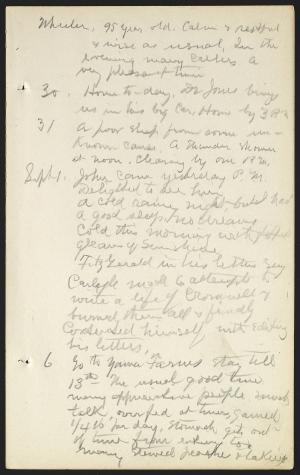 Wheeler, 95 year old. Calm & restful
& wise as usual, In the
evening many callers a
very pleasant time
30. Home to-day, Dr Jones brings
us in his big car. Home by 3 P.M.
31 A poor sleep from some un-
known cause. A thunder shower
at noon. Clearing by one P.M.
Sept 1. John came yesterday P.M.
delighted to see him.
a cold rainy night but had
a good sleep. No dreams
Cold this morning with
gleams of sunshine.
Fitzgerald in his letters say
Carlyle made attempts to
write a life of Cromwell &
burned them all & finally
contented himself with editing
his letters,
6 Go to Yama Farms stay till
13th The usual good time
many appreciative people much
talk,
1/4 lb per day, stomach gets out
of tune from eating too
many stewed prunes &